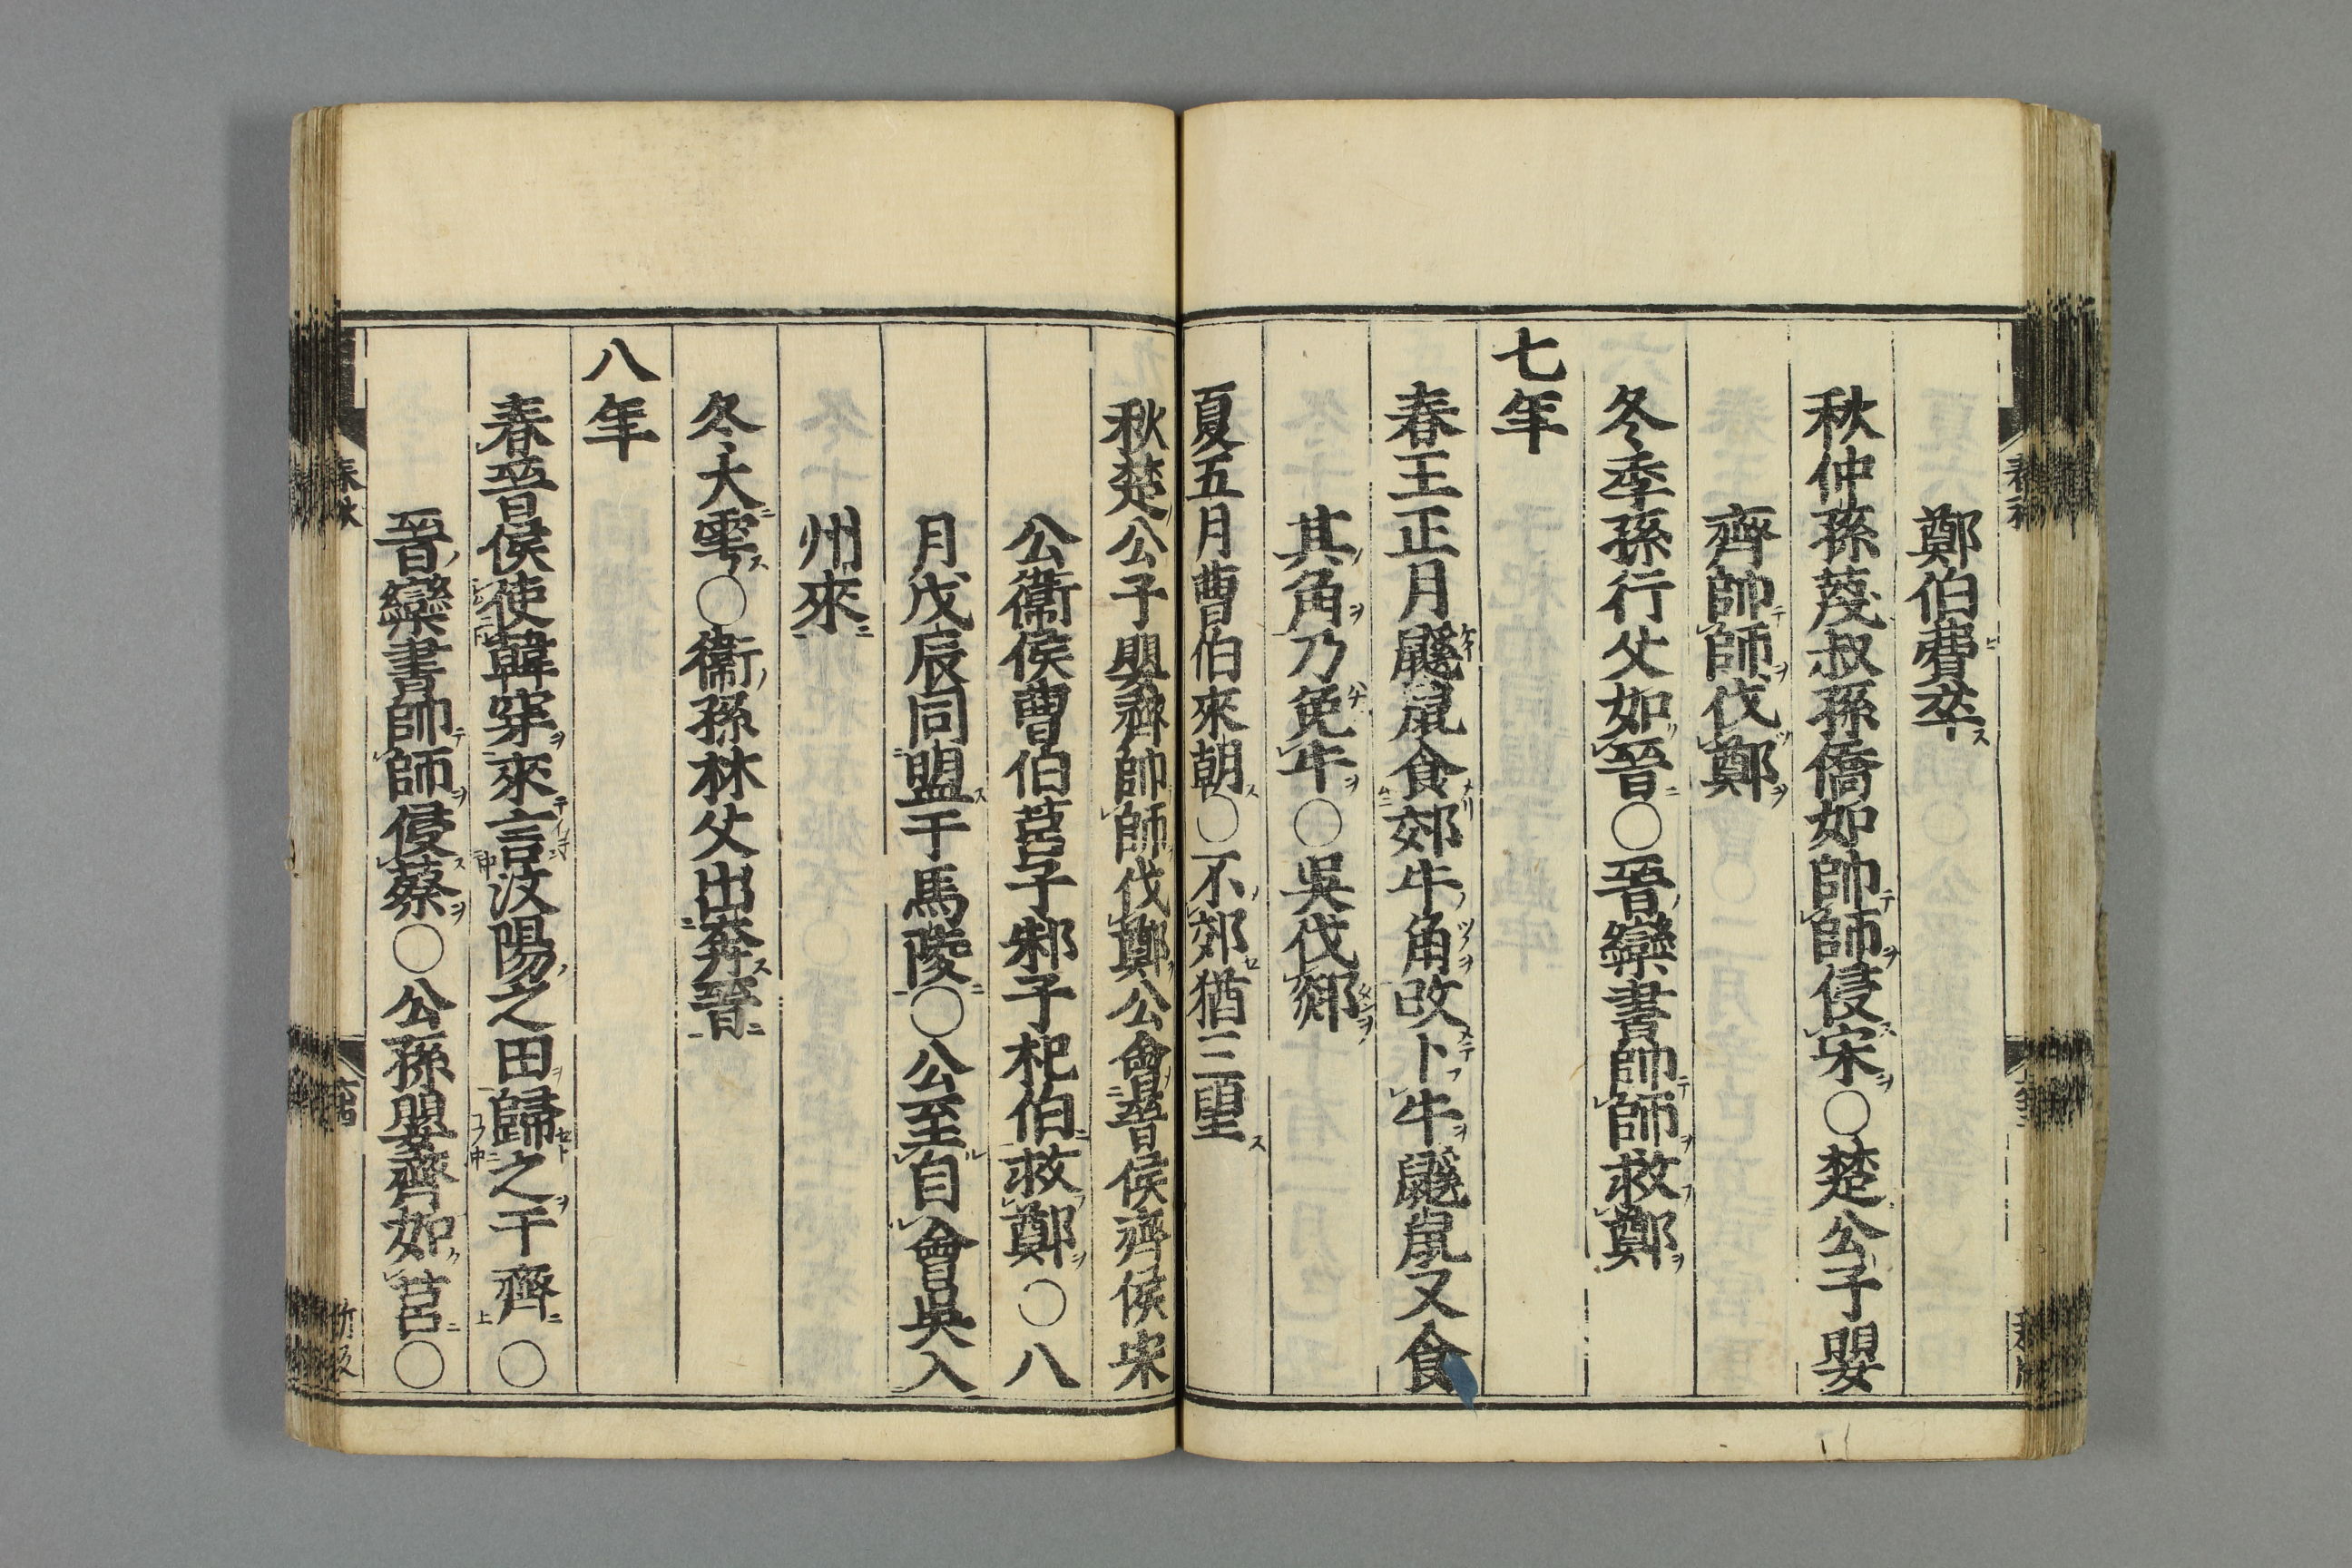 鄭伯費卒
秋仲孫蔑叔孫僑如帥師侵宋○楚公子嬰
齊帥師伐鄭
冬季孫行父如晉○晉欒書帥師救鄭
七年
春王正月鼷鼠食郊牛角改卜牛鼷鼠又食
其角乃免牛○吳伐郯
夏五月曹伯來朝○不郊猶三望
秋楚公子嬰齊帥師伐鄭公會晉侯齊侯宋
公衞侯曹伯莒子邾子杞伯救鄭○八
月戊辰同盟于馬陵○公至自會吳入
州來
冬大雩○衞孫林父出奔晉
八年
春晉侯使韓穿來言汶陽之田歸之于齊○
晉欒書帥師侵蔡○公孫嬰齊如莒○